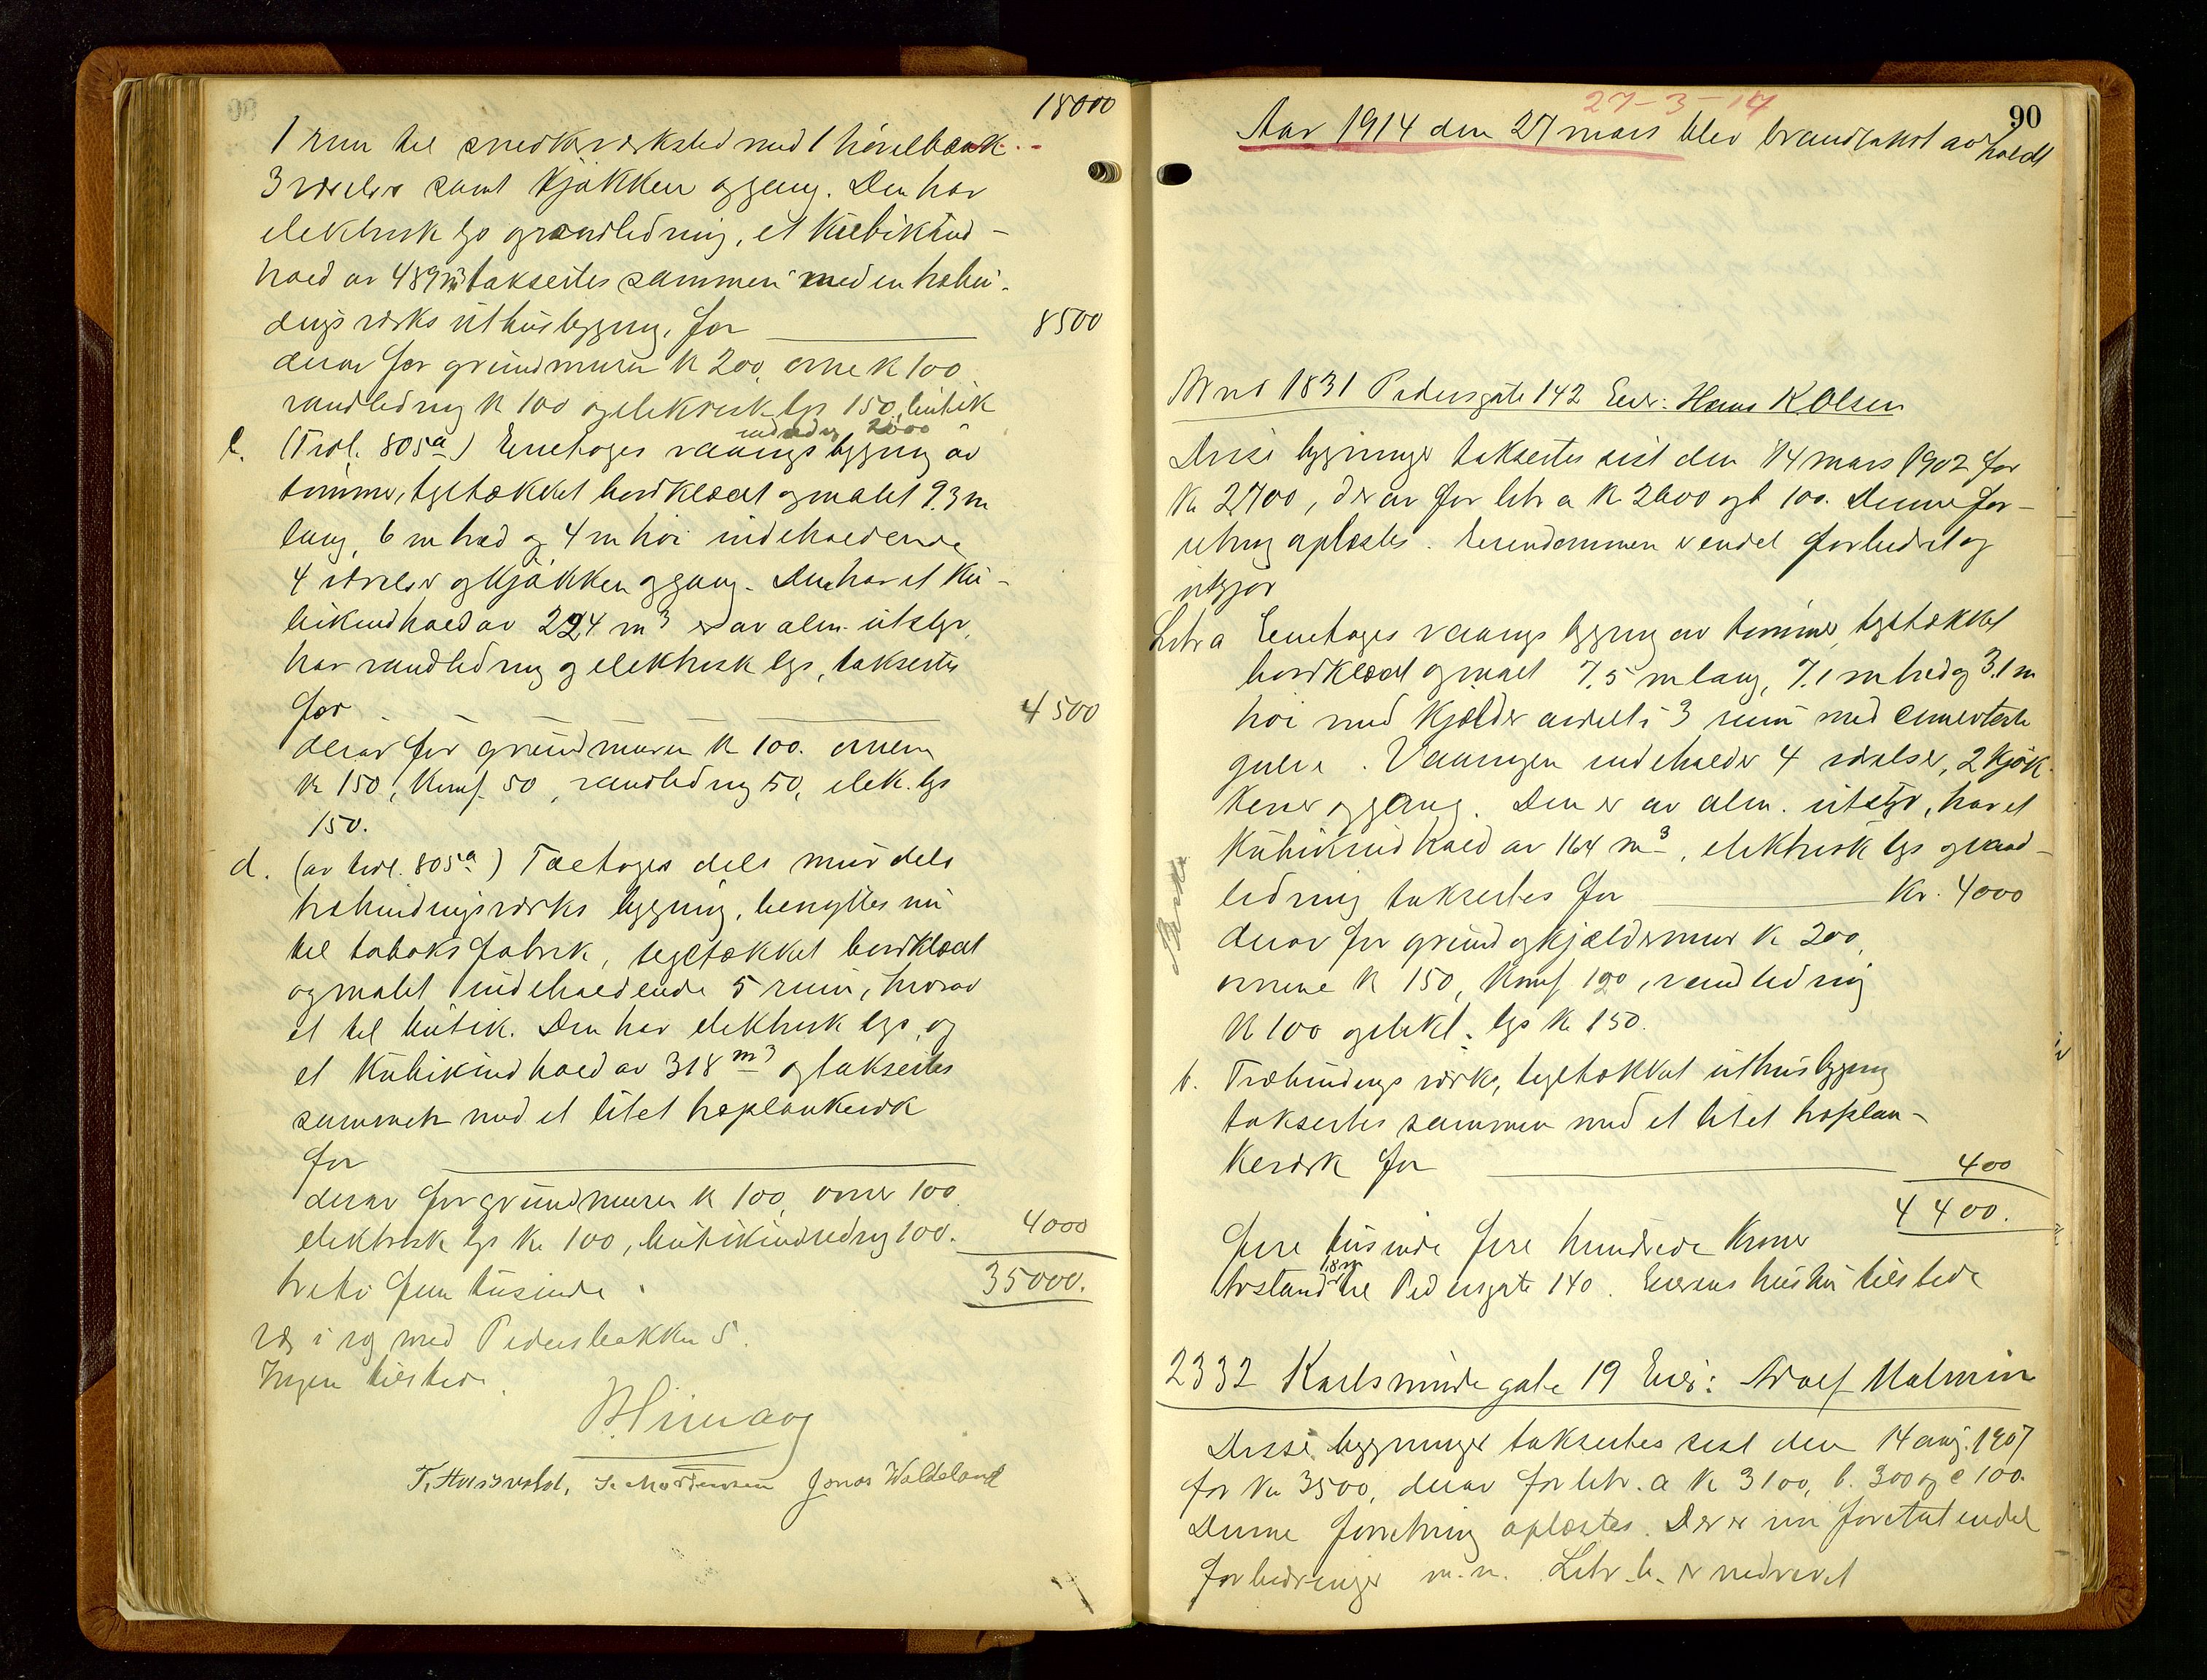 18000
1 rum til snedkerverksted med 1 høvelbænk
3 værelser samt kjøkken og gang. Den har
elektrisk lys og vandledning, et kubikind-
hold av 489 m³ takseres sammen med en trebin-
dingsverks uthusbygning, for 8500
derav for grundmuren k 200, ovne k 100
vandledning k 100 og elektrisk lys 150, butik
indredn 2000
c. (Tidl. 805a) Enetages vaaningsbygning av
tømmer, tegltækket bordklædt og malet 9.3 m
lang, 6 m bred og 4 m høi indeholdende
4 værelser og kjøkken og gang. Den har et ku-
bikindhold av 224 m³ er av alm. utstyr,
har vandledning og elektrisk lys, takseres
for 4500
derav for grundmuren k 100. ovnene
k 150, komf. 50, vandledning 50, elek. lys
150.
d. (av tidl. 805a) Toetages dels mur dels
trebindingsverks bygning, benyttes nu
til tobaksfabrik, tegltækket bordklædt
og malet indeholdende 5 rum, hvorav
et til butik. Den har elektrisk lys, og
et kubikindhold av 318 m³ og takseres
sammen med et litet træplankeverk
for
derav for grundmuren k 100, ovner 100
elektrisk lys kr 100, butikindredning 100. 4000
tretti fem tusinde 35000.
Væg i væg med Pedersbakken 5.
Ingen tilstede.
S. Mortensen Jonas Waldeland
90
27-3-14
Aar 1914 den 27 mars blev brandtakst av
holdt
Br no 1831 Pedersgate 142 Eier: Hans K Olsen
Disse bygninger takseres sist den 14 mars 1902 for
Kr 2700, derav for litr a kr 2600 og b 100. Denne for-
retning oplæstes. Eiendommen er endel forbedret og
utgjør
Litr a Enetages vaaningsbygning av tømmer, tegltækket
bordklædt og malt 7.5 m lang, 7.1 m bred og 3.1 m
høi med kjælder avdelt i 3 rum med cementerte
gulve. Vaaningen indeholder 4 værelser, 2 kjøk-
kener og gang. Den er av alm. utstyr, har et
kubikindhold av 164 m³, elektrisk lys og vand-
ledning takseres for Kr. 4000
derav for grund og kjældermur k 200,
ovnene k 150, komf 120, vandledning
k 100 og elekt. lys kr 150.
b. Træbindings verks, tegltækket uthusbygning
takseres sammen med et litet træplan-
keverk for 400
4400.
fire tusinde fire hundrede kroner
1,8 m
Avstand til Pedersgate 140. Eierens hustru tilstede
2332 Karlsminde gate 19 Eier: Adolf Malmin
Disse bygninger takseres sist den 14 aug. 1907
for kr 3500, derav for litr. a k 3100, b. 300 og c 100.
Denne forretning oplæstes. Der er nu foretat endel
forbedringer m.v. Litr. b. er nedrevet